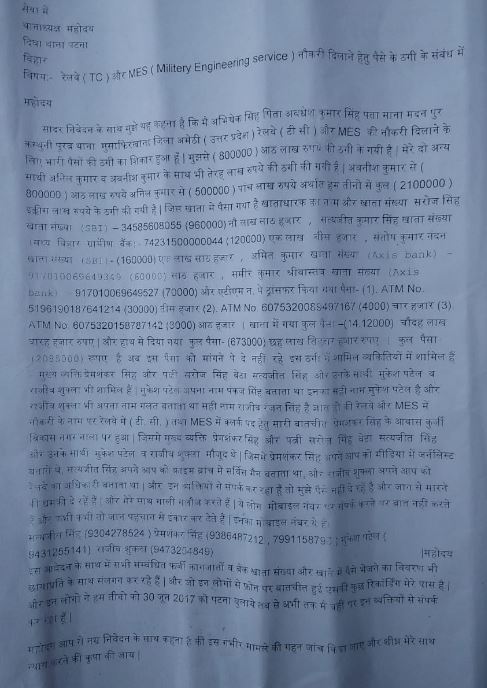 सेवा में
थानाध्यक्ष महोदय
दिघा थाना पटना
बिहार
विषय:- रेलवे ( TC ) और MES ( Militery Engineering service ) नौकरी दिलाने हेतु पैसे के ठगी के संबंध में
महोदय
सादर निवेदन के साथ मुझे यह कहना है कि मै अभिषेक सिंह पिता अवधेश कुमार सिंह पता माना मदन पुर
पूरब थाना मुसाफिरखाना जिला अमेठी ( उत्तर प्रदेश ) रेलवे ( टी सी ) और MES की नौकरी दिलाने के
लिए भारी पैसों की ठगी का शिकार हुआ हूँ | मुझसे ( 800000 ) आठ लाख रुपये की ठगी के गयी है | मेरे दो अन्य
साथी अनिल कुमार व अवनीश कुमार के साथ भी तेरह लाख रुपये की ठगी की गयी है | अवनीश कुमार से (
800000 ) आठ लाख रुपये अनिल कुमार से ( 500000 ) पांच लाख रुपये अर्थात हम तीनो से कुल ( 2100000 )
इक्कीस लाख रुपये के ठगी की गयी है | जिस खाता में पैसा गया है खाताधारक का नाम और खाता संख्या सरोज सिंह
खाता संख्या (SBI) – 34585608055 (960000) नौ लाख साठ हजार , सत्यजीत कुमार सिंह खाता संख्या
(मध्य बिहार ग्रामीण बैंक:- 74231500000044 (120000) एक लाख बीस हजार , संतोष कुमार नंदन
खाता संख्या (SBI)-(160000) एक लाख साठ हजार , अमित कुमार खाता संख्या (Axis bank) –
917010069649349 (60000) साठ हजार , समीर कुमार श्रीवास्तव खाता संख्या (Axis
bank) - 917010069649527 (70000) और एटीएम न. पे ट्रांसफर किया गया पैसा- (1). ATM No.
5196190187641214 (30000) तीस हजार (2). ATM No. 6075320089497167 (4000) चार हजार (3)
ATM No. 6075320158787142 (3000) आठ हजार | खाता में गया कुल पैसा –(14,12000) चौदह लाख
बारह हजार रुपए | और हाथ में दिया गया कुल पैसा- (673000) छह लाख तिहत्तर हजार रुपए | कुल पैसा
(2098000) रुपए है अब इस पैसा को मांगने पे दे नही रहे इस ठगी में शामिल व्यक्तियों में शामिल हैं
मुख्य व्यक्ति प्रेमशंकर सिंह और पत्नी सरोज सिंह बेटा सत्यजीत सिंह और उनके साथी मुकेश पटेल व
राजीव शुक्ला भी शामिल हैं | मुकेश पटेल अपना नाम पंकज सिंह बताता था इनका सही नाम मुकेश पटेल है और
राजीव शुक्ला भी अपना नाम गलत बताता था सही नाम राजीव रंजन सिंह है ज्ञात हो की रेलवे और MES में
नौकरी के नाम पर रेलवे में ( टी. सी. ) तथा MES में क्लर्क पद हेतु सारी बातचीत प्रेमशंकर सिंह के आवास कुर्जी
विकास नगर नाला पर हुआ | जिसमे मुख्य व्यक्ति प्रेमशंकर सिंह और पत्नी सरोज सिंह बेटा सत्यजीत सिंह
और उनके साथी मुकेश पटेल व राजीव शुक्ला मौजूद थे | जिसमे प्रेमशंकर सिंह अपने आप को मीडिया में जर्नलिस्ट
बताते थे, सत्यजीत सिंह अपने आप को क्राइम ब्रांच में सर्विस मैन बताता था, और राजीव शुक्ला अपने आप को
रेलवे का अधिकारी बताता था | और इन व्यक्तियों से संपर्क कर रहा हूँ तो मुझे पैसे नहीं दे रहे है और जान से मारने
की धमकी दे रहें हैं | और मेरे साथ गाली गलौज करते हैं | ये लोग मोबाइल नंबर पर संपर्क करने पर बात नहीं करते
हैं और कभी कभी तो जान पहचान से इंकार कर देते हैं | इनका मोबाइल नंबर ये हैं|
सत्यजीत सिंह (9304278524 ) प्रेमशंकर सिंह (9386487212 , ) मुकेश पटेल (
9431255141) राजीव शुक्ला (9473204849) |महोदय
इस आवेदन के साथ में सभी सम्बंधित फर्जी कागजातों व बैंक खाता संख्या और खाते में पैसे भेजने का विवरण भी
छायाप्रति के साथ संलग्न कर रहे हैं | और जो इन लोगों से फोन पर बातचीत हुई उसकी कुछ रिकॉर्डिंग मेरे पास है |
और इन लोगो ने हम तीनो को 30 जून 2017 को पटना बुलाये तब से अभी तक में यहीं पर इन व्यक्तियों से संपर्क
कर रहा हूँ |
महोदय आप से नम्र निवेदन के साथ कहना है की इस गंभीर मामले की गहन जांच किया जाए और शीघ्र मेरे साथ
न्याय करने की कृपा की जाय |